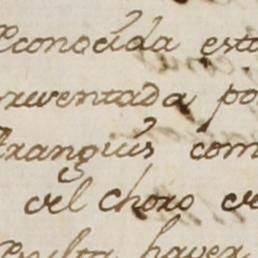 econocida est
nventada po
frangiis com
del choro de
sulta haver